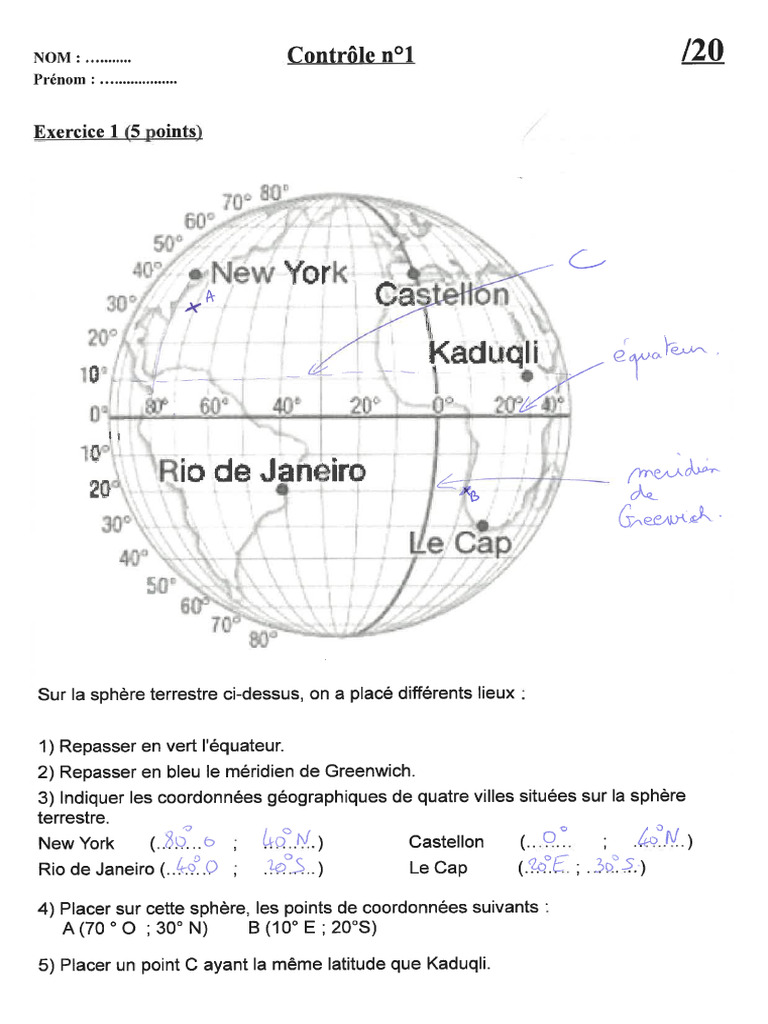 NOM : …........
Contrôle n°1
/20
Prénom : …................
Exercice 1 (5 points)
80°
70°
60°
50°
40°
New York
C
30°
A
Castellon
20°
Kaduqli
équateur.
10°
80° 60° 40° 20° 0° 20° 40°
0°
10°
Rio de Janeiro
méridien
de
Greewich.
20°
B
30°
Le Cap
40°
50°
60°
70°
80°
Sur la sphère terrestre ci-dessus, on a placé différents lieux :
1) Repasser en vert l'équateur.
2) Repasser en bleu le méridien de Greenwich.
3) Indiquer les coordonnées géographiques de quatre villes situées sur la sphère
terrestre.
New York (80° O ; 40° N) Castellon (0° ; 40° N)
Rio de Janeiro (40° O ; 20° S) Le Cap (20° E ; 30° S)
4) Placer sur cette sphère, les points de coordonnées suivants :
A (70 ° O ; 30° N) B (10° E ; 20°S)
5) Placer un point C ayant la même latitude que Kaduqli.